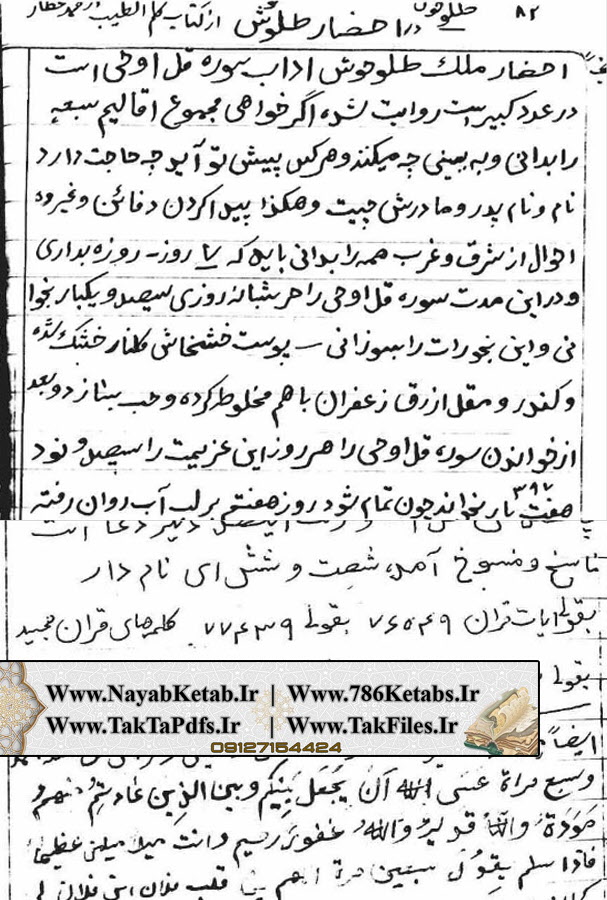 ۸۲
در احضار طلوحوش از کتاب کلم الطیب از محمد عطار
احضار ملك طلوحوش اداب سوره قل اوحی است
در عدد کبیر است روایت شده اگر خواهی مجموع اقالیم سبعه
را بدانی و به بینی چه میکنند و هر کس پیش تو آید چه حاجت دارد
نام و نام پدر و مادرش چیست و هکذا پیدا کردن دفائن و غیره
احوال از شرق و غرب همه را بدانی باید که ۷ روز - روزه بداری
و در این مدت سوره قل اوحی را هر شبانه روزی سیصد و یکبار بخوا
نی و این بخورات را بسوزانی - پوست خشخاش گلنار خشک شده
و کندر و مقل ازرق زعفران با هم مخلوط کرده و حب بسازد و بعد
از خواندن سوره قل اوحی را هر روز این عزیمت را سیصد و نود
هفت ۳۹۷ بار بخواند چون تمام شود روز هفتم بر لب آب روان رفته
ناسخ و منسوخ آمد، شصت و شش ای نام دار
بقولی ایات قران ۷۶۵۴۹ بقولی ۷۷۴۳۹ کلمهای قران مجید
بقولی
www.NayabKetab.Ir | www.786Ketabs.Ir
www.TakTaPdfs.Ir | www.TakFiles.Ir
09127154424
ایضاً
و سبع مراة عسی الله ان یجعل بینکم وبین الذین عادیتم منهم
مودة والله قدیر والله غفور رحیم وانت
فاذا سلم یقول سبعین مرة اللهم قلب فلان ابن فلان